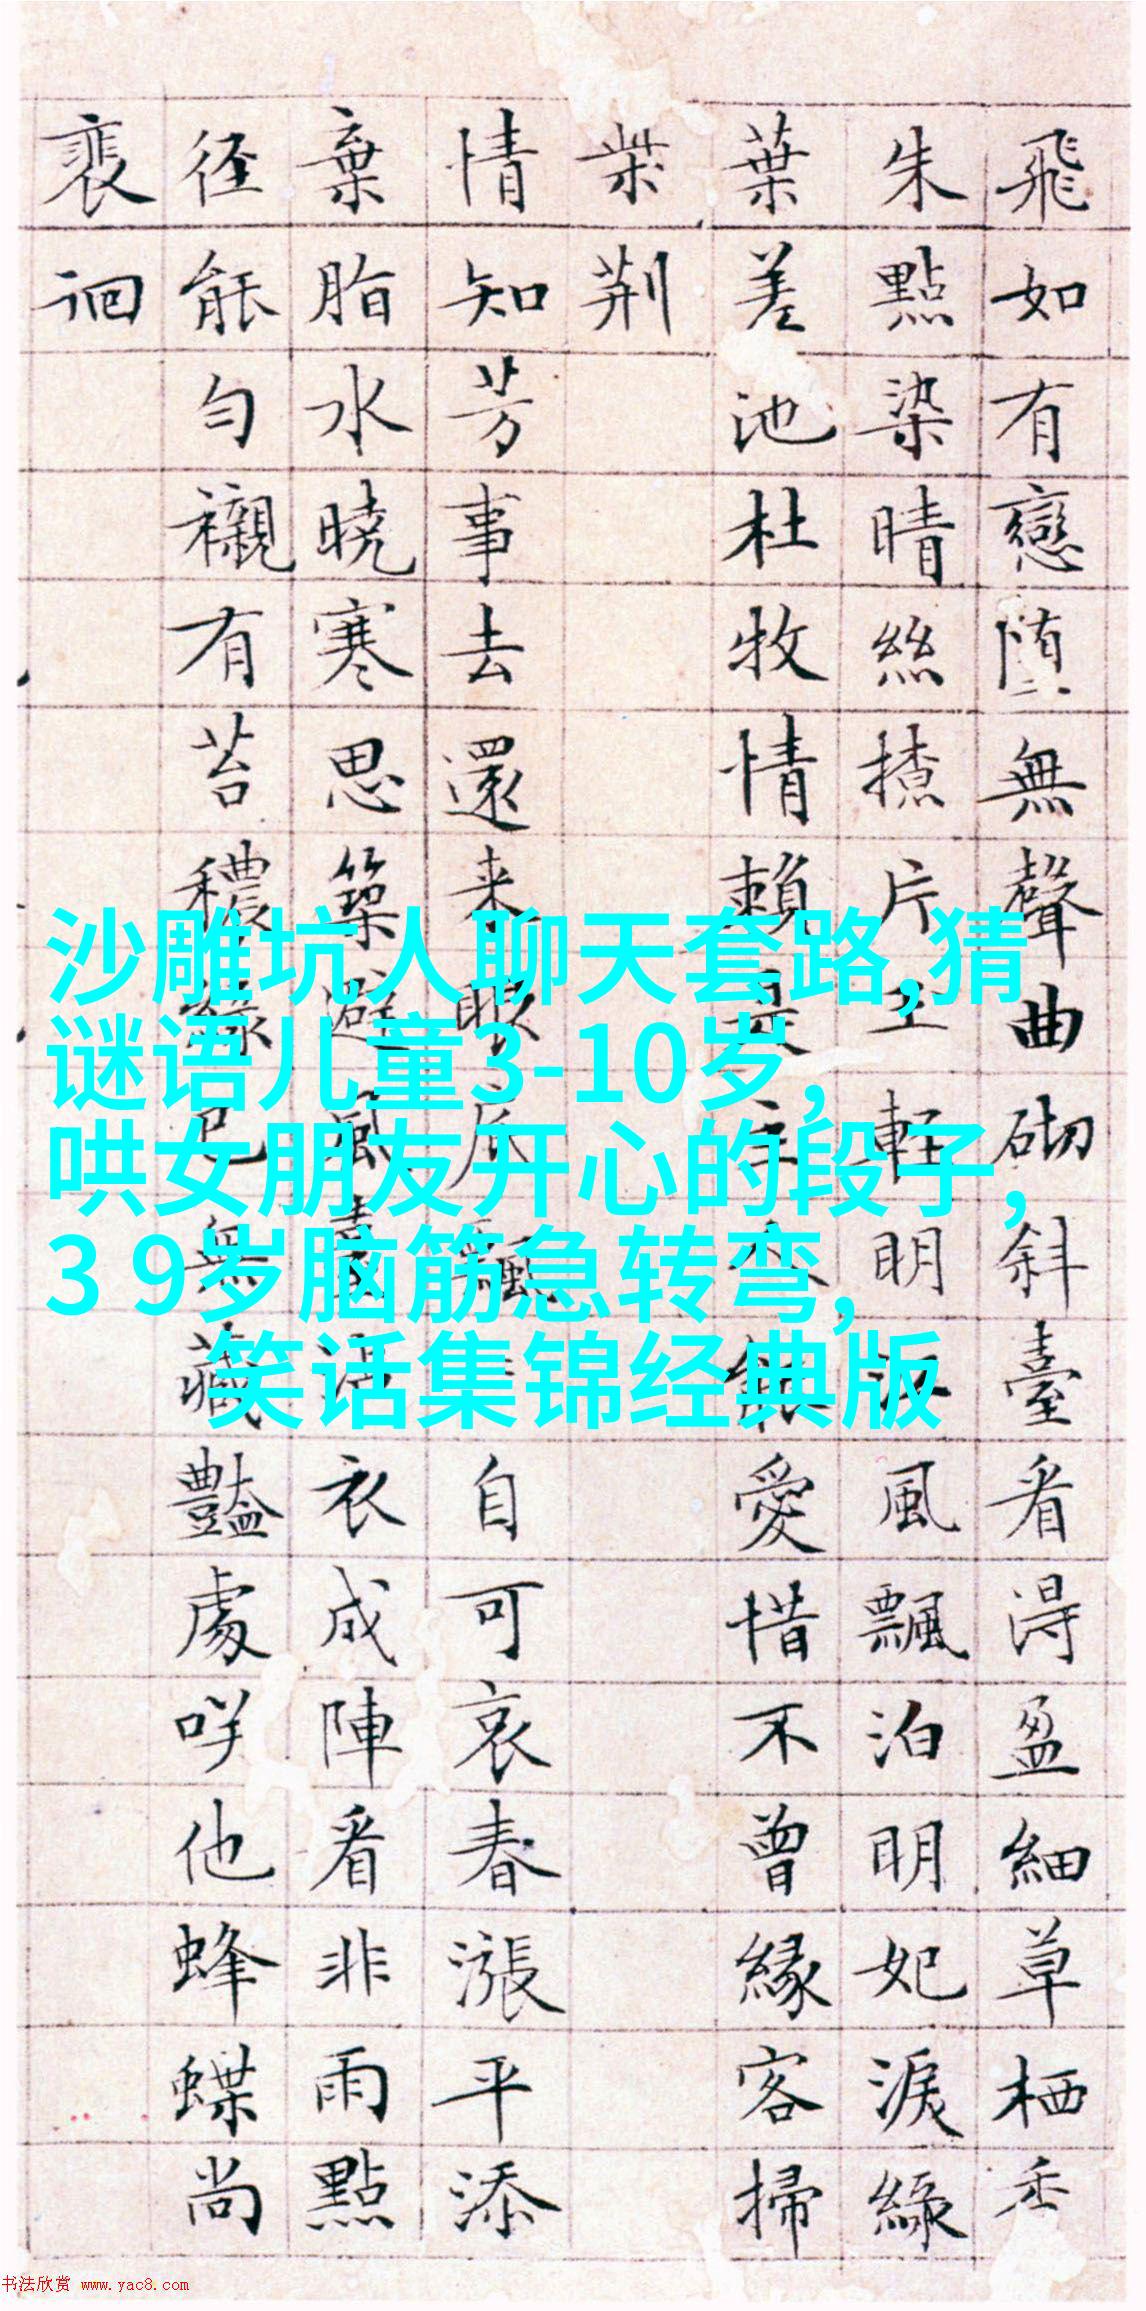 飛如有戀堕無聲曲砌斜臺看得盈細草栖香
朱點染晴絲撩片玉輕明風飄泊明妃淚綠
葉差池杜牧情賴是主人能愛惜不曾緣客掃
柴荆
情知芳事去還来眼底飄自可哀春漲平添
棄脂水曉寒思築避風臺沾衣成陣看非雨點
径能勻襯有苔穠綠已無藏豔處咲他蜂蝶尚
裵徊
沙雕坑人聊天套路,猜
谜语儿童3-10岁,
哄女朋友开心的段子,
3 9岁脑筋急转弯,
笑话集锦经典版
书法欣赏 www.yac8.com